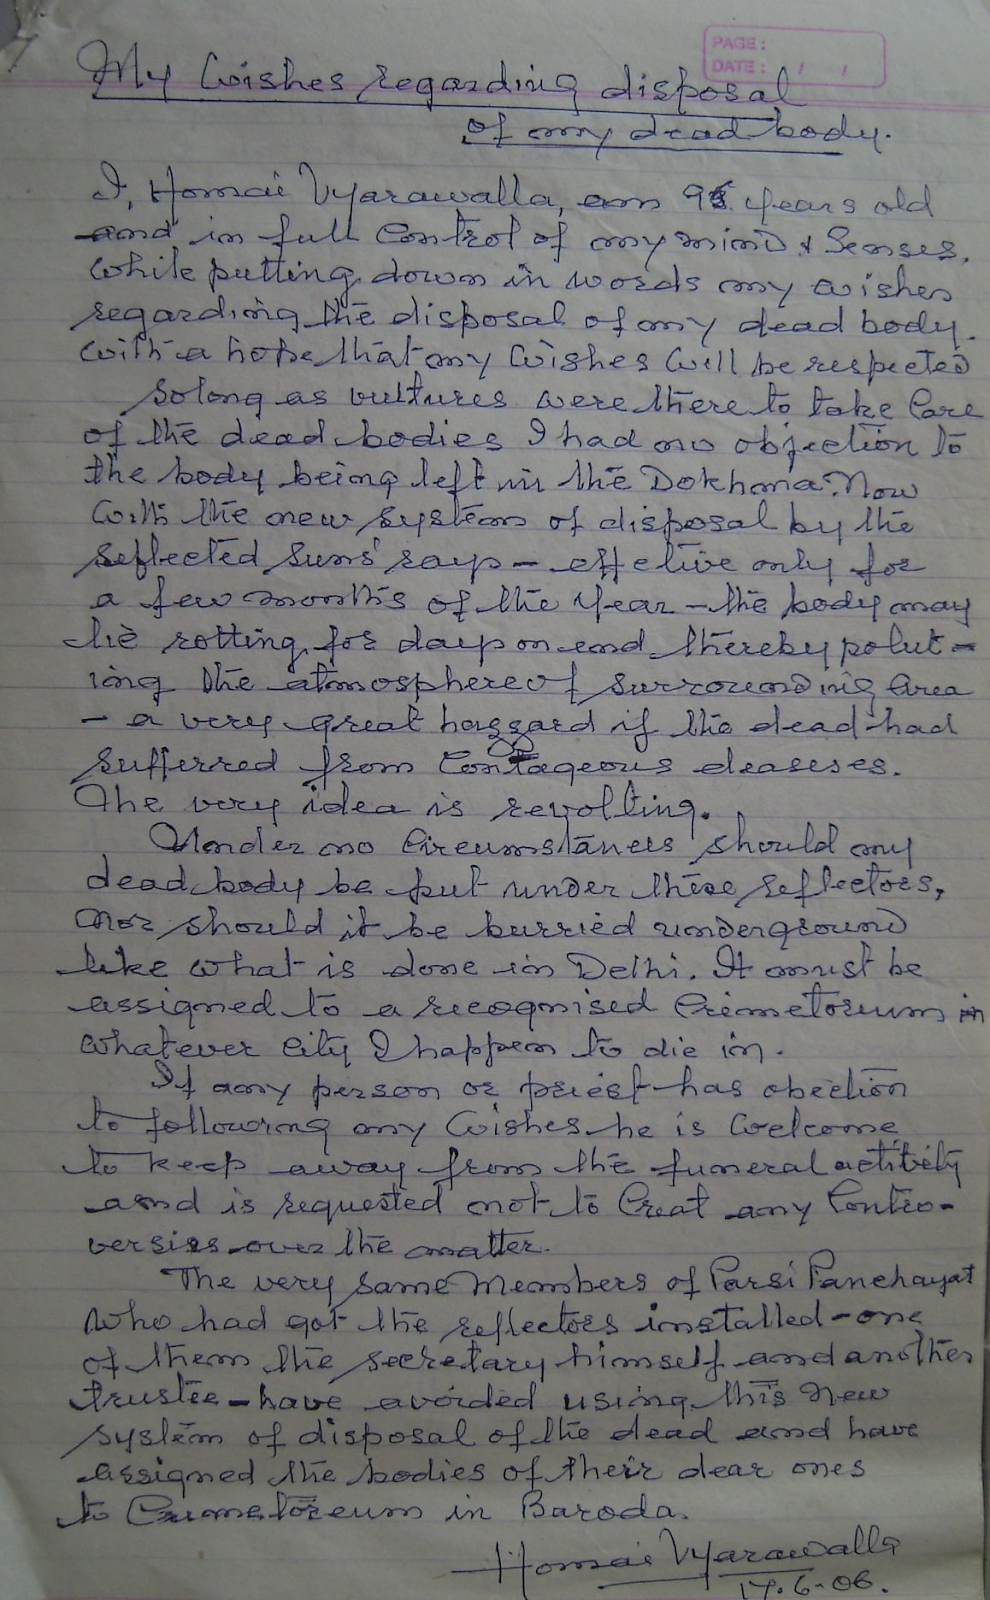 PAGE :
DATE : / /
My Wishes regarding disposal
of my dead body.
I, Homai Vyarawalla, am years old
and in full Control of my mind & Senses,
while putting down in words my wishes
regarding the disposal of my dead body.
with a hope that my wishes will be respected
So long as vultures were there to take Care
of the dead bodies I had no objection to
the body being left in the Dokhma. Now
with the new system of disposal by the
reflected suns' rays - effetive only for
a few months of the year - the body may
lie rotting for days on end thereby polut-
ing the atmosphere of surrounding Area
- a very great hazzard if the dead had
sufferred from Contageous deaseses.
The very idea is revolting.
Under no Circumstances should my
dead body be put under these reflectors,
nor should it be burried underground
like what is done in Delhi. It must be
assigned to a recognised Crimetoreum in
whatever City I happen to die in.
If any person or priest has obection
to following my wishes he is welcome
to keep away from the funeral actitity
and is requested not to Creat any Contro-
versies over the matter.
The very same Members of Parsi Panchayat
who had got the reflectors installed - one
of them the secretary himself and another
trustee - have avoided using this new
system of disposal of the dead and have
assigned the bodies of their dear ones
to Crimetoreum in Baroda.
Homai Vyarawalla
17.6-06.